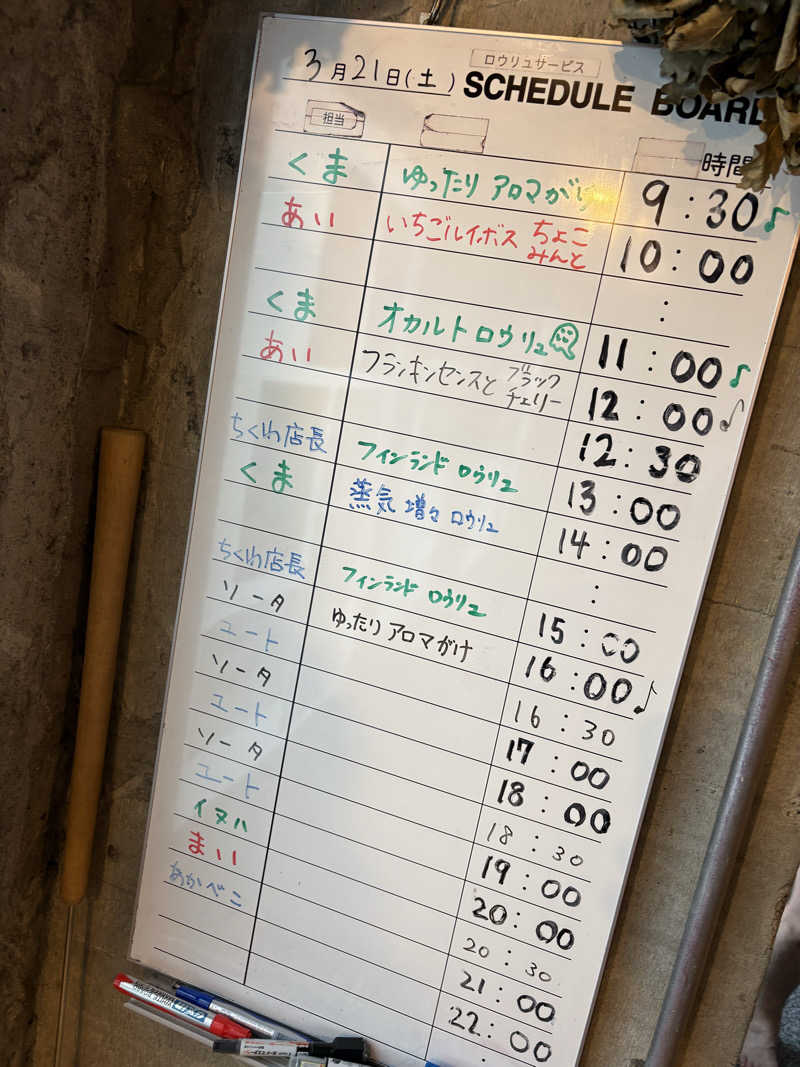 ロウリュサービス
3月21日(土) SCHEDULE BOARD
担当 時間
くま ゆったり アロマがけ 9:30♪
あい いちごルイボス ちょこみんと 10:00
:
くま オカルトロウリュ 11:00♪
あい フランキンセンスと ブラックチェリー 12:00♪
12:30
ちくわ店長 フィンランド ロウリュ 13:00
くま 蒸気 増々 ロウリュ 14:00
:
ちくわ店長 フィンランド ロウリュ 15:00
ソータ ゆったり アロマがけ 16:00♪
ユート 16:30
ソータ 17:00
ユート 18:00
ソータ 18:30
ユート 19:00
イヌハ 20:00
まい 20:30
あかべこ 21:00
22:00
: